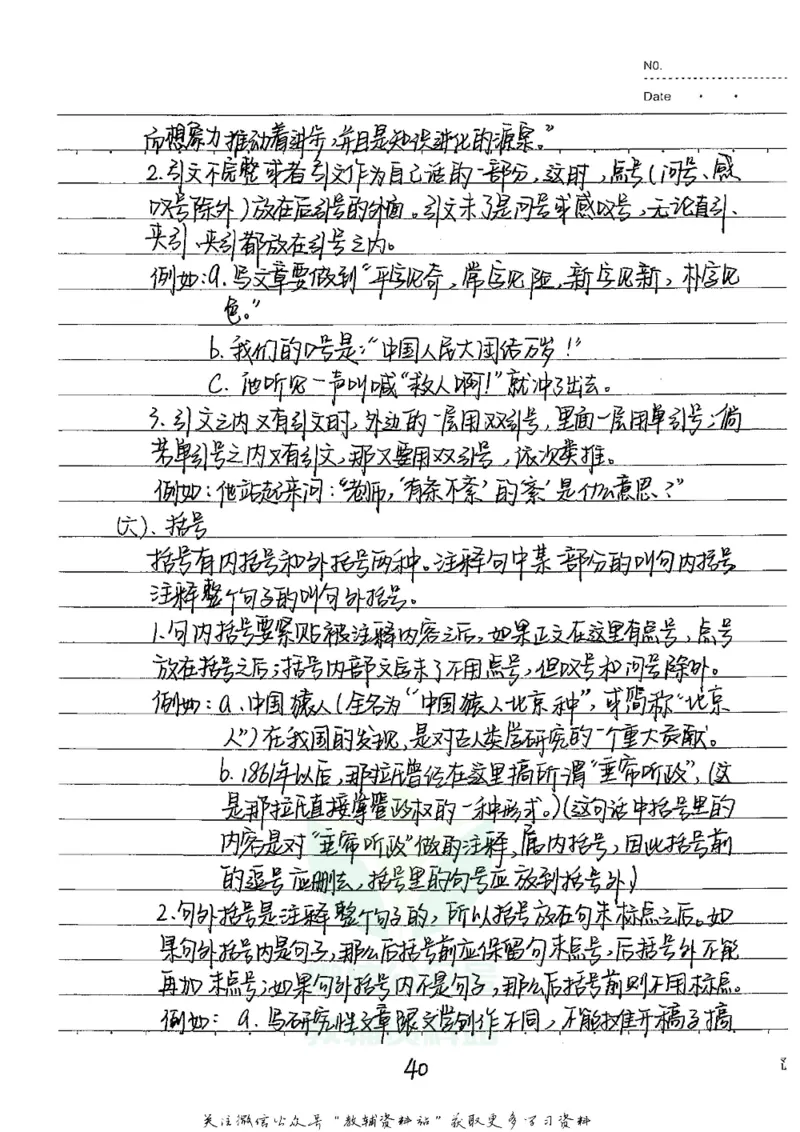 NO.
Date
而想象力推动着进步,并且是知识进化的源泉。”
2.引文不完整或者引文作为自己话的一部分,这时,点号(问号、感
叹号除外)放在后引号的外面。引文末了是问号或感叹号,无论直引、
夹引、夹引都放在引号之内。
例如:a.写文章要做到“平字见奇,常字见险,新字见新,朴字见
色。”
b.我们的口号是:“中国人民大团结万岁!”
C.他听见一声叫喊“救人啊!”就冲了出去。
3.引文之内又有引文时,外边的一层用双引号,里面一层用单引号;倘
若单引号之内又有引文,那又要用双引号,依次类推。
例如:他站起来问:“老师,‘有条不紊’的‘紊’是什么意思?”
(六)、括号
括号有内括号和外括号两种。注释句中某一部分的叫句内括号
注释整个句子的叫句外括号。
1.句内括号要紧贴被注释内容之后,如果正文在这里有点号,点号
放在括号之后;括号内部文后末了不用点号,但叹号和问号除外。
例如:a.中国猿人(全名为“中国猿人北京种”,或简称“北京
人”)在我国的发现,是对古人类学研究的一个重大贡献。
b.1861年以后,那拉氏曾经在这里搞所谓“垂帘听政”,(这
是那拉氏直接掌管政权的一种形式。)(这句话中括号里的
内容是对“垂帘听政”做的注释,属内括号,因此括号前
的逗号应删去,括号里的句号应放到括号外)
2.句外括号是注释整个句子的,所以括号放在句末标点之后。如
果句外括号内是句子,那么后括号前应保留句末点号,后括号外不能
再加末点号;如果句外括号内不是句子,那么后括号前则不用标点。
例如: a.写研究性文章跟文学创作不同,不能摊开稿子搞
40
关注微信公众号“教辅资料站”获取更多学习资料